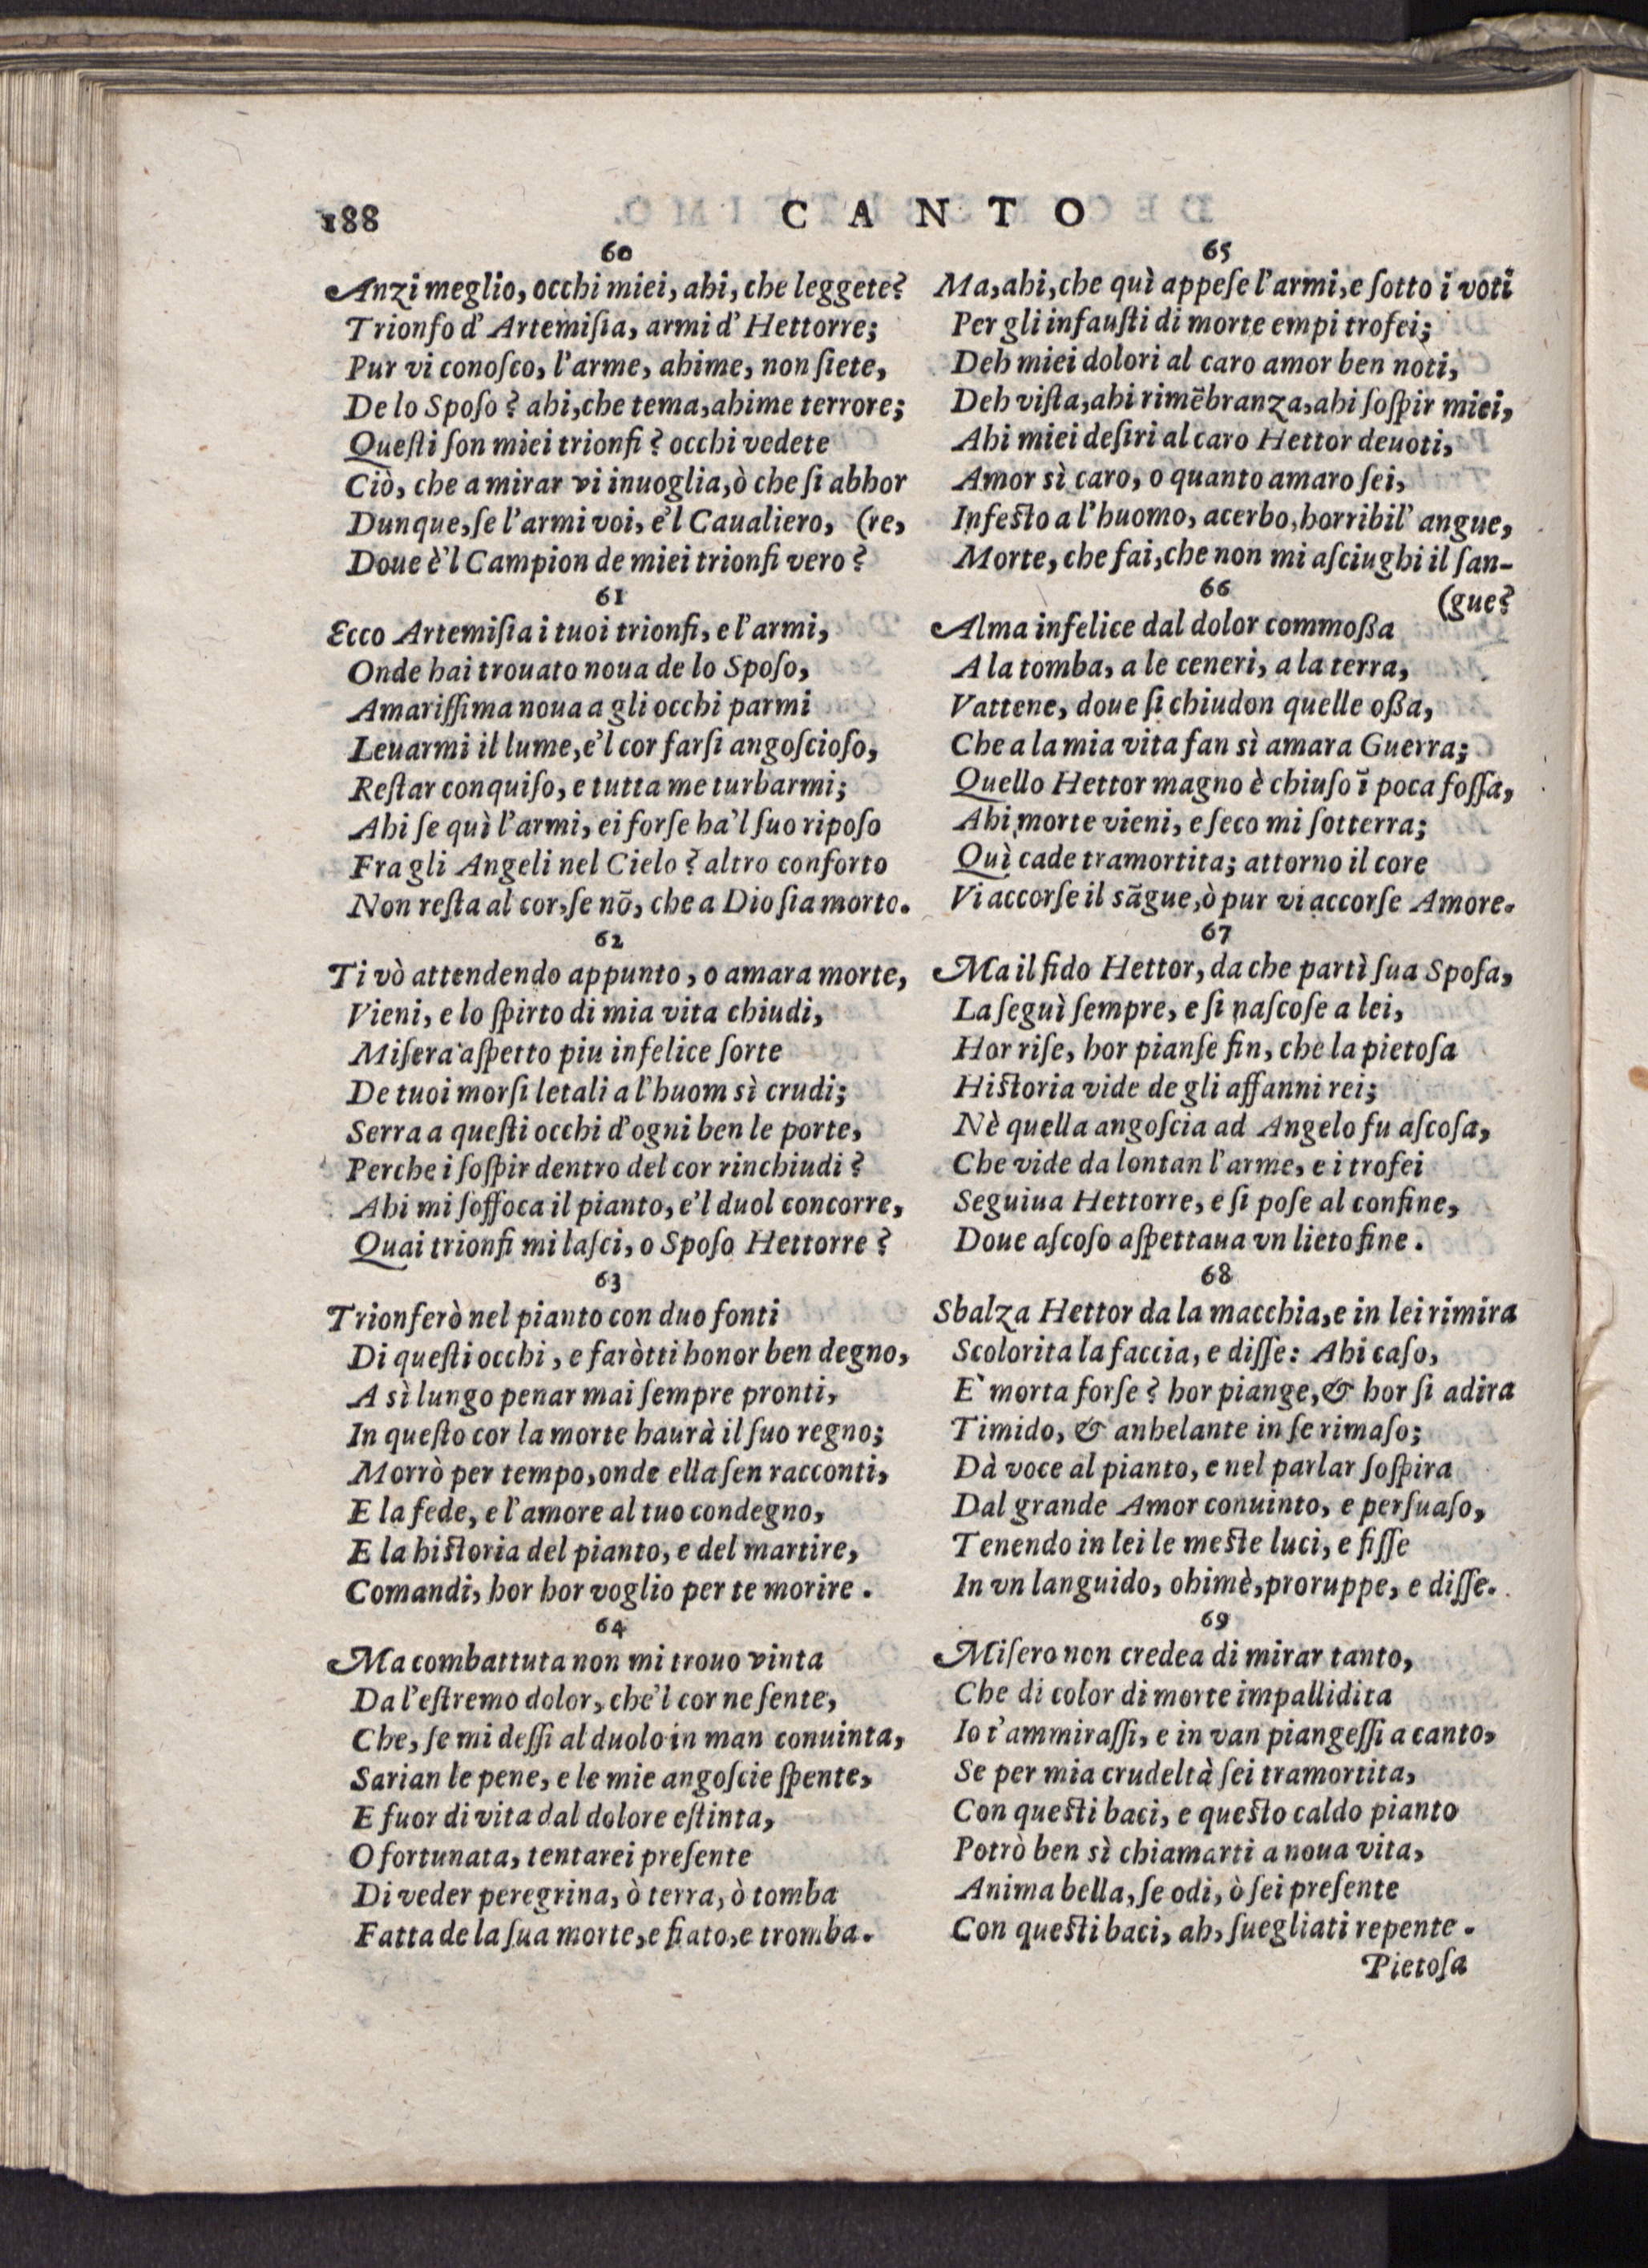 188 CANTO
60
Anzi meglio, occhi miei, ahi, che leggete?
Trionfo d' Artemiſia, armi d' Hettorre;
Pur vi conoſco, l'arme, ahime, non ſiete,
De lo Spoſo? ahi, che tema, ahime terrore;
Queſti ſon miei trionfi? occhi vedete
Ciò, che a mirar vi inuoglia, ò che ſi abhor
Dunque, ſe l'armi voi, e'l Caualiero, (re,
Doue è'l Campion de miei trionfi vero?
61
Ecco Artemiſia i tuoi trionfi, e l'armi,
Onde hai trouato noua de lo Spoſo,
Amariſſima noua a gli occhi parmi
Leuarmi il lume, e'l cor farſi angoſcioſo,
Reſtar conquiſo, e tutta me turbarmi;
Ahi ſe quì l'armi, ei forſe ha'l ſuo ripoſo
Fra gli Angeli nel Cielo? altro conforto
Non reſta al cor, ſe nõ, che a Dio ſia morto.
62
Ti vò attendendo appunto, o amara morte,
Vieni, e lo ſpirto di mia vita chiudi,
Miſera aſpetto piu infelice ſorte
De tuoi morſi letali a l'huom sì crudi;
Serra a queſti occhi d'ogni ben le porte,
Perche i ſoſpir dentro del cor rinchiudi?
Ahi mi ſoffoca il pianto, e'l duol concorre,
Quai trionfi mi laſci, o Spoſo Hettorre?
63
Trionferò nel pianto con duo fonti
Di queſti occhi, e faròtti honor ben degno,
A sì lungo penar mai ſempre pronti,
In queſto cor la morte haurà il ſuo regno;
Morrò per tempo, onde ella ſen racconti,
E la fede, e l'amore al tuo condegno,
E la hiſtoria del pianto, e del martire,
Comandi, hor hor voglio per te morire.
64
Ma combattuta non mi trouo vinta
Da l'eſtremo dolor, che'l cor ne ſente,
Che, ſe mi deſſi al duolo in man conuinta,
Sarian le pene, e le mie angoſcie ſpente,
E fuor di vita dal dolore eſtinta,
O fortunata, tentarei preſente
Di veder peregrina, ò terra, ò tomba
Fatta de la ſua morte, e fiato, e tromba.
65
Ma, ahi, che quì appeſe l'armi, e ſotto i voti
Per gli infauſti di morte empi trofei;
Deh miei dolori al caro amor ben noti,
Deh viſta, ahi rimẽbranza, ahi ſoſpir miei,
Ahi miei deſiri al caro Hettor deuoti,
Amor sì caro, o quanto amaro ſei,
Infeſto a l'huomo, acerbo, horribil' angue,
Morte, che fai, che non mi aſciughi il ſan-
(gue?
66
Alma infelice dal dolor commoßa
A la tomba, a le ceneri, a la terra,
Vattene, doue ſi chiudon quelle oßa,
Che a la mia vita fan sì amara Guerra;
Quello Hettor magno è chiuſo ĩ poca foſſa,
Ahi morte vieni, e ſeco mi ſotterra;
Quì cade tramortita; attorno il core
Vi accorſe il sãgue, ò pur vi accorſe Amore.
67
Ma il fido Hettor, da che partì ſua Spoſa,
La ſeguì ſempre, e ſi naſcoſe a lei,
Hor riſe, hor pianſe fin, che la pietoſa
Hiſtoria vide de gli affanni rei;
Nè quella angoſcia ad Angelo fu aſcoſa,
Che vide da lontan l'arme, e i trofei
Seguiua Hettorre, e ſi poſe al confine,
Doue aſcoſo aſpettaua vn lieto fine.
68
Sbalza Hettor da la macchia, e in lei rimira
Scolorita la faccia, e diſſe: Ahi caſo,
E` morta forſe? hor piange, & hor ſi adira
Timido, & anhelante in ſe rimaſo;
Dà voce al pianto, e nel parlar ſoſpira
Dal grande Amor conuinto, e perſuaſo,
Tenendo in lei le meſte luci, e fiſſe
In vn languido, ohimè, proruppe, e diſſe.
69
Miſero non credea di mirar tanto,
Che di color di morte impallidita
Io t'ammiraſſi, e in van piangeſſi a canto,
Se per mia crudeltà ſei tramortita,
Con queſti baci, e queſto caldo pianto
Potrò ben sì chiamarti a noua vita,
Anima bella, ſe odi, ò ſei preſente
Con queſti baci, ah, ſuegliati repente.
Pietoſa